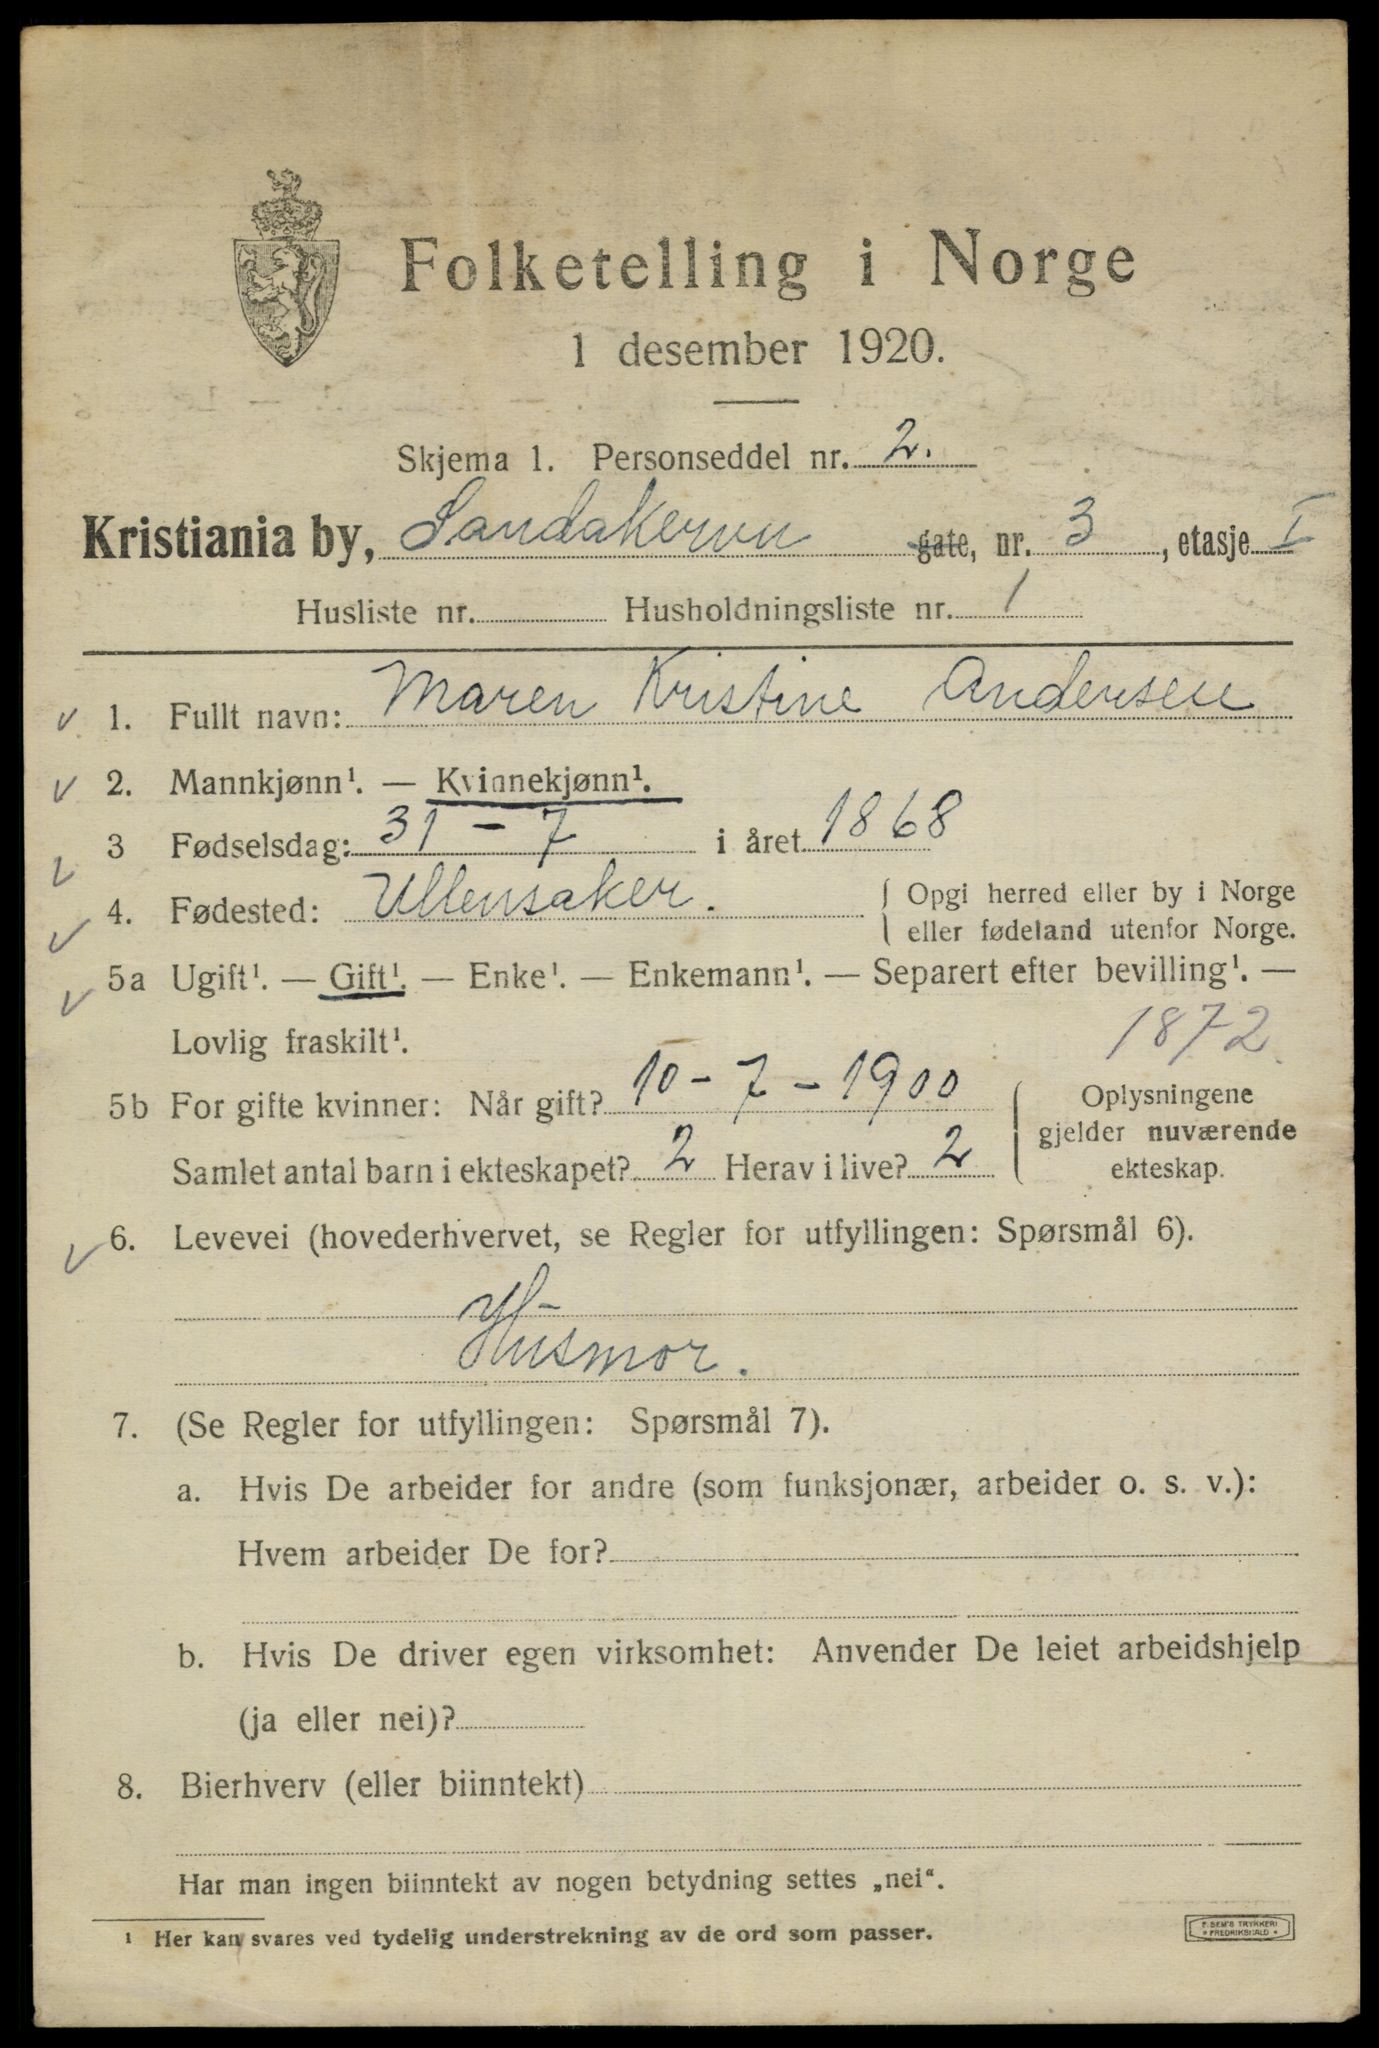 Folketelling i Norge
1 desember 1920.
Skjema 1. Personseddel nr. 2.
Kristiania by, Sandakervn gate, nr. 3, etasje I
Husliste nr. Husholdningsliste nr. 1
1. Fullt navn: Maren Kristine Andersen
2. Mannkjønn¹. — Kvinnekjønn¹.
3 Fødselsdag: 31 - 7 i året 1868
4. Fødested: Ullensaker. Opgi herred eller by i Norge
eller fødeland utenfor Norge.
5a Ugift¹. — Gift¹. — Enke¹. — Enkemann¹. — Separert efter bevilling¹. —
Lovlig fraskilt¹. 1872
5b For gifte kvinner: Når gift? 10 - 7 - 1900 Oplysningene
gjelder nuværende
Samlet antal barn i ekteskapet? 2 Herav i live? 2 ekteskap.
6. Levevei (hovederhvervet, se Regler for utfyllingen: Spørsmål 6).
H-
Husmor.
7. (Se Regler for utfyllingen: Spørsmål 7).
a. Hvis De arbeider for andre (som funksjonær, arbeider o. s. v.):
Hvem arbeider De for?
b. Hvis De driver egen virksomhet: Anvender De leiet arbeidshjelp
(ja eller nei)?
8. Bierhverv (eller biinntekt)
Har man ingen biinntekt av nogen betydning settes „nei“.
¹ Her kan svares ved tydelig understrekning av de ord som passer.
F. SEM'S TRYKKERI
* FREDRIKSHALD *